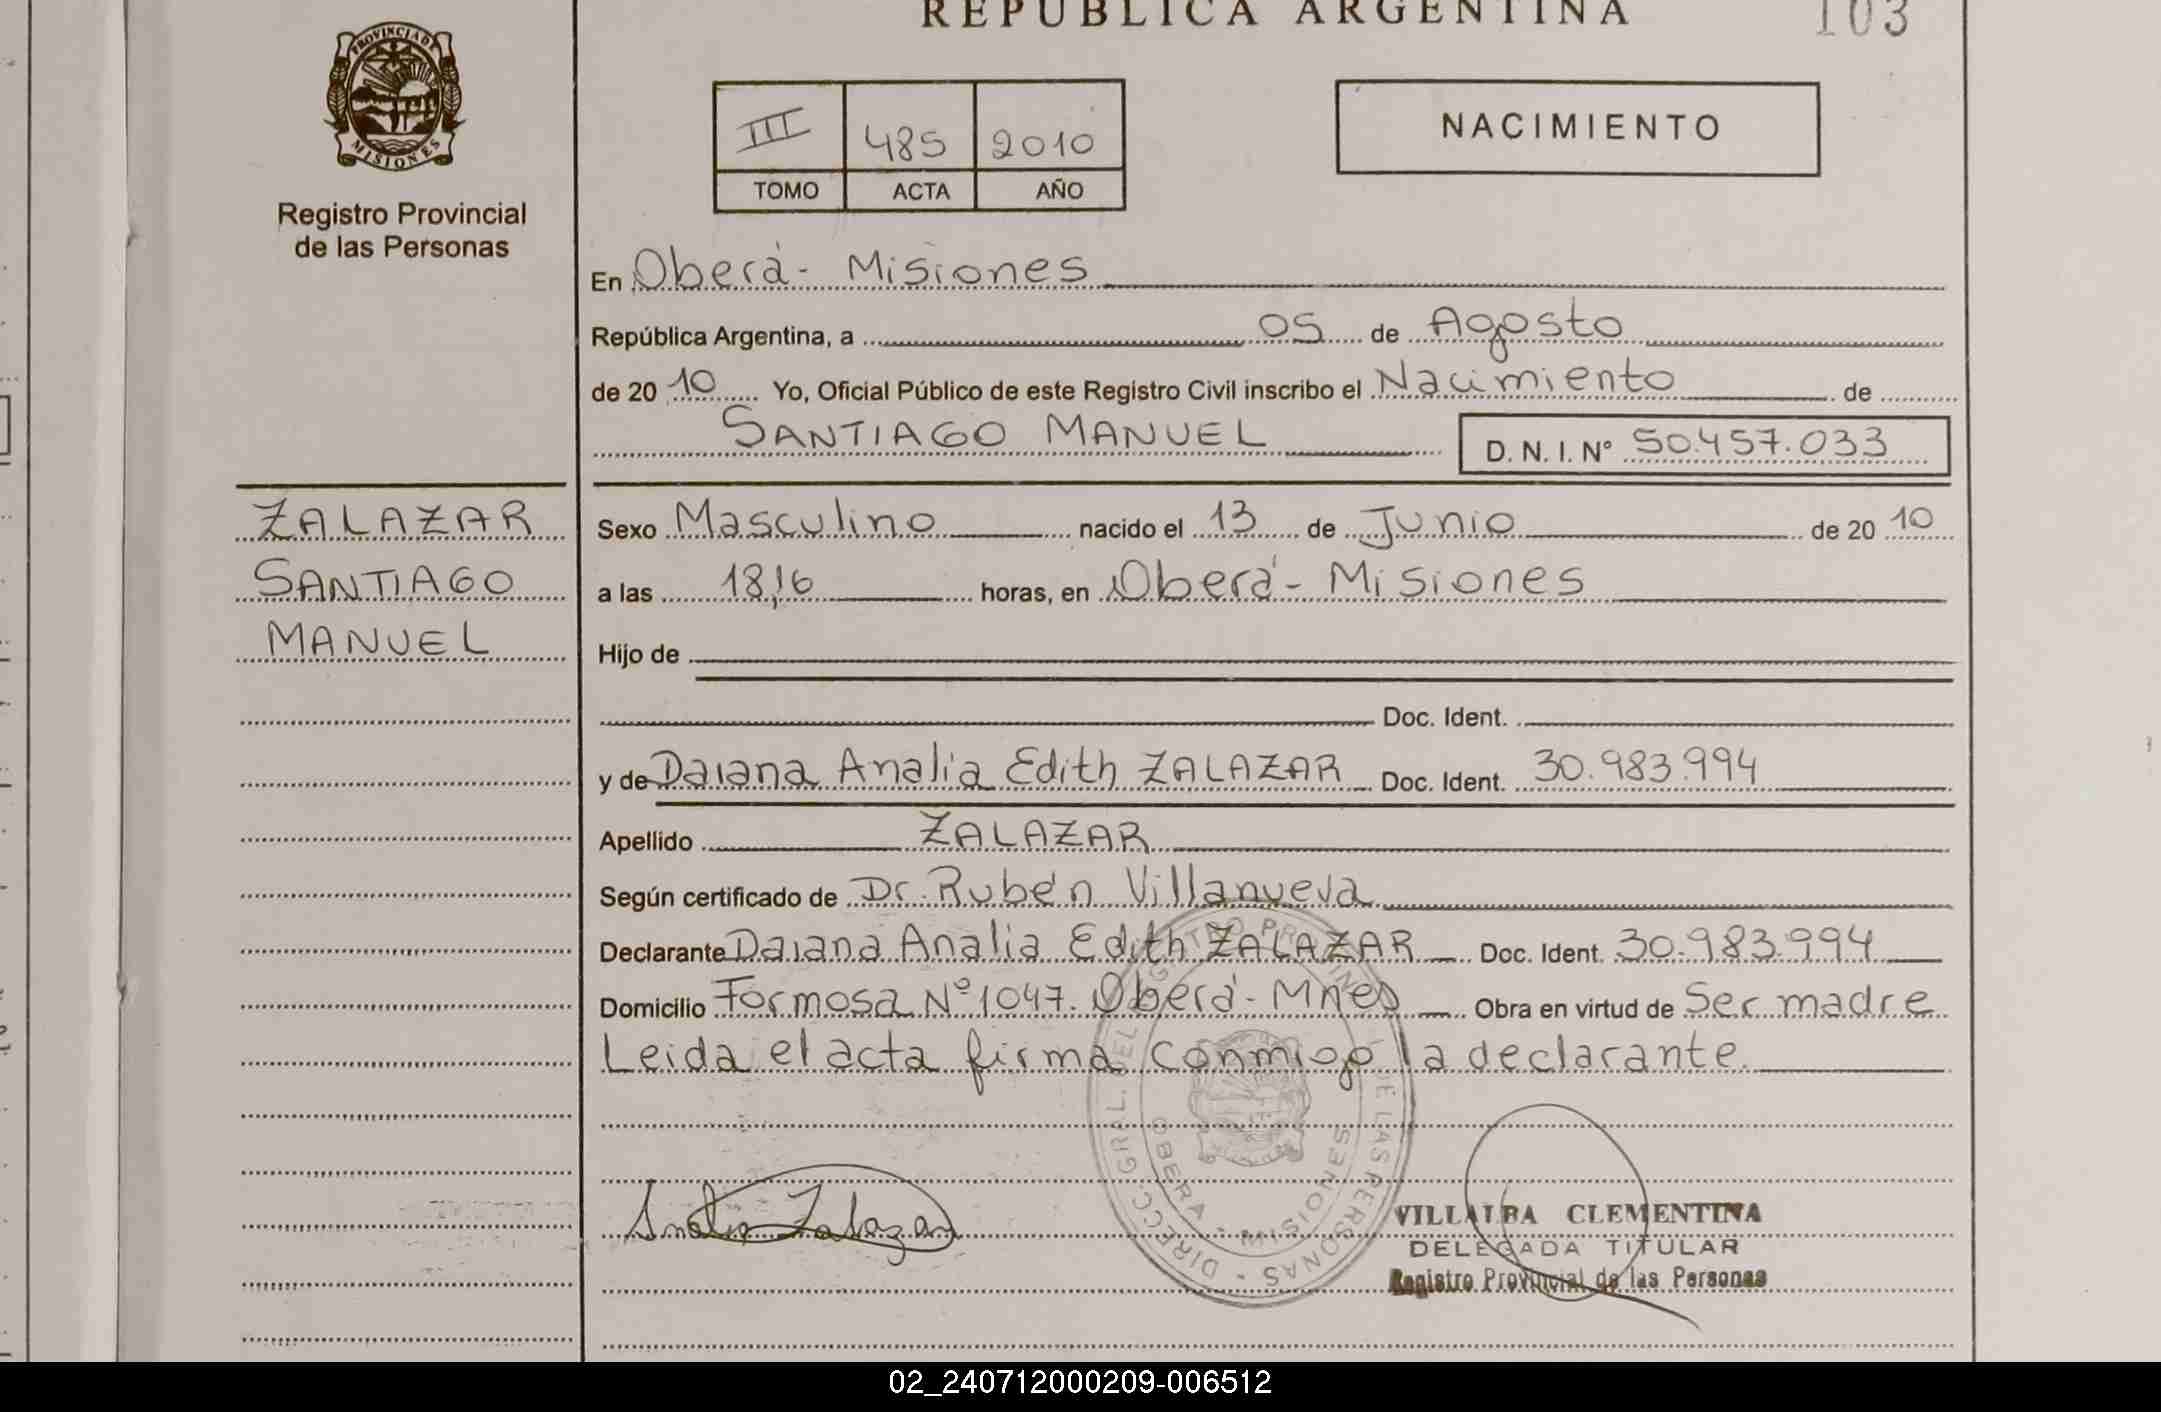 REPUBLICA ARGENTINA
103
PROVINCIA DE
MISIONES
Registro Provincial
de las Personas
III 485 2010
TOMO ACTA AÑO
NACIMIENTO
En Oberá - Misiones
República Argentina, a 05 de Agosto
de 20 10 Yo, Oficial Público de este Registro Civil inscribo el Nacimiento de
SANTIAGO MANUEL D. N. I. Nº 50.457.033
ZALAZAR
SANTIAGO
MANUEL
Sexo Masculino nacido el 13 de Junio de 20 10
a las 18,16 horas, en Oberá - Misiones
Hijo de
Doc. Ident.
y de Daiana Analia Edith ZALAZAR Doc. Ident. 30.983.994
Apellido ZALAZAR
Según certificado de Dr. Rubén Villanueva
Declarante Daiana Analia Edith ZALAZAR Doc. Ident. 30.983.994
Domicilio Formosa Nº 1047. Oberá - Mnes Obra en virtud de Ser madre
Leida el acta firma conmigo la declarante.
DIRECC. GRAL. DEL REGISTRO PROVINCIAL DE LAS PERSONAS
OBERA - MISIONES
Analia Zalazar
VILLALBA CLEMENTINA
DELEGADA TITULAR
Registro Provincial de las Personas
02_240712000209-006512